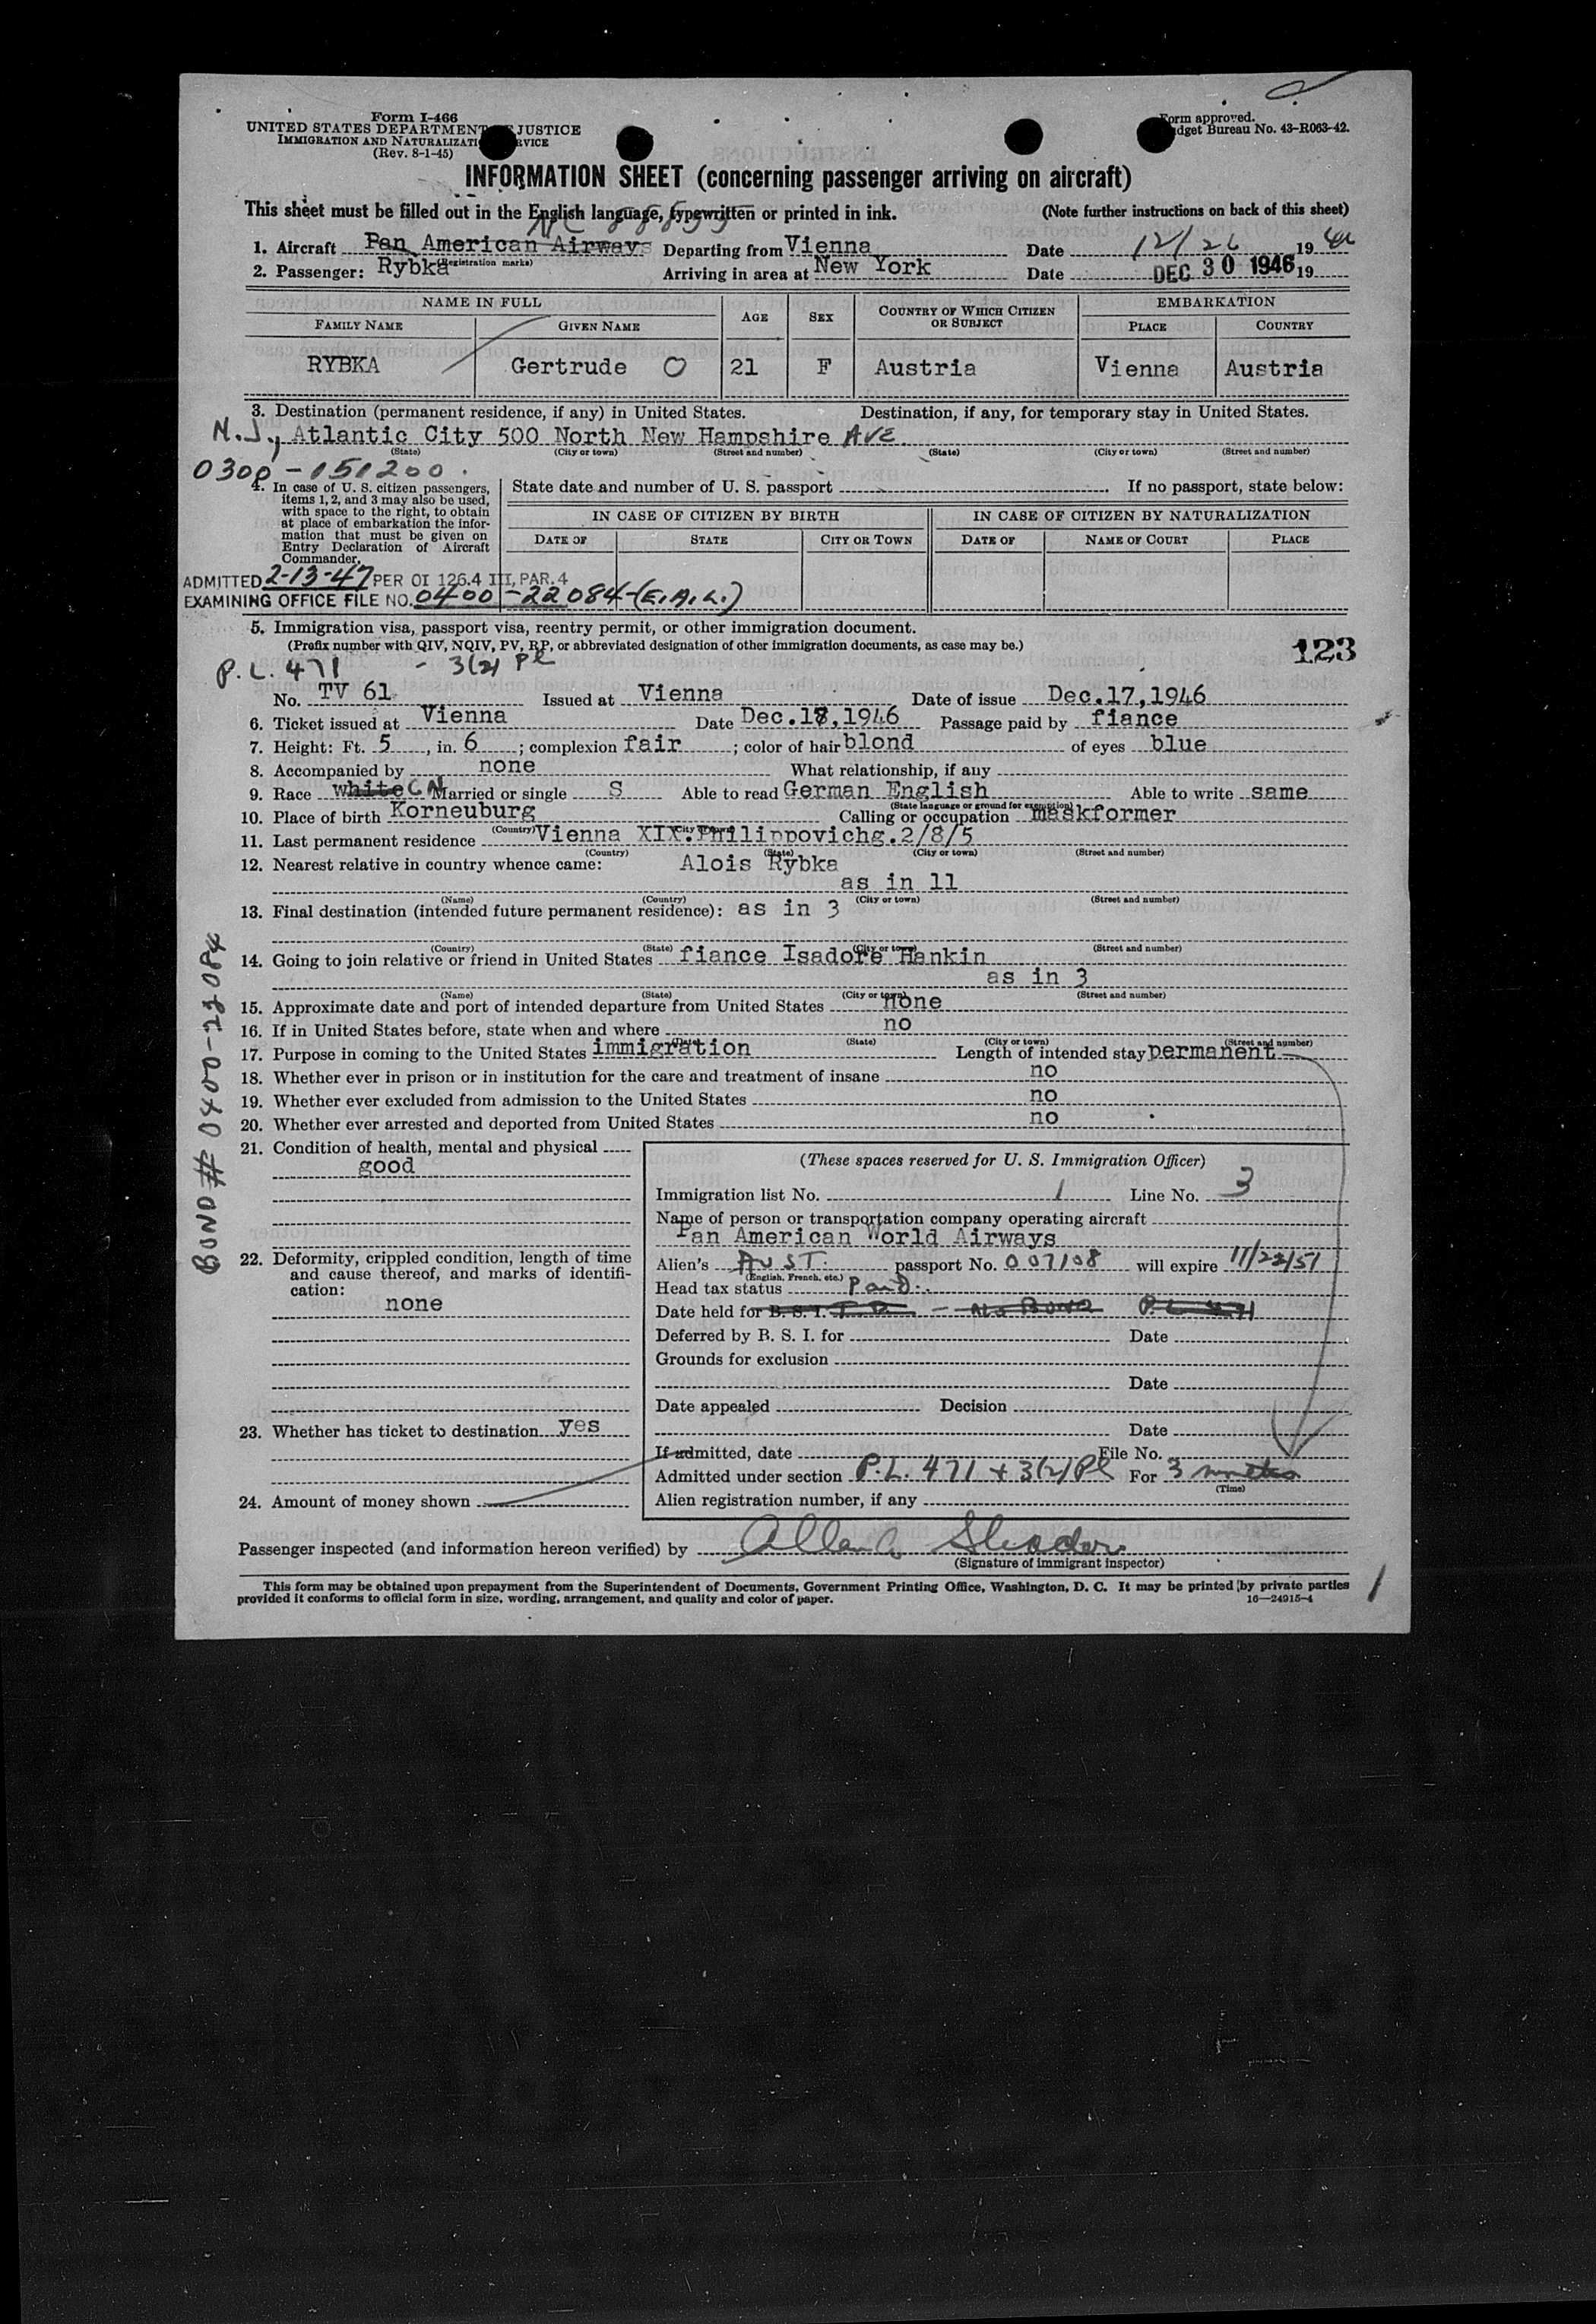 Form I-466
UNITED STATES DEPARTMENT JUSTICE
IMMIGRATION AND
(Rev. 8-1-45)
Form approved.
Budget Bureau No. 43-R063-42.
INFORMATION SHEET (concerning passenger arriving on aircraft)
This sheet must be filled out in the English language, typewritten or printed in ink. (Note further instructions on back of this sheet)
1. Aircraft Pan American Airways Departing from Vienna Date 12/26 1946
(Registration marks)
2. Passenger: Rybka Arriving in area at New York Date DEC 30 1946 19
NAME IN FULL EMBARKATION
FAMILY NAME GIVEN NAME AGE SEX COUNTRY OF WHICH CITIZEN OR SUBJECT PLACE COUNTRY
RYBKA Gertrude O 21 F Austria Vienna Austria
3. Destination (permanent residence, if any) in United States. Destination, if any, for temporary stay in United States.
N.J., Atlantic City 500 North New Hampshire AVE
(State) (City or town) (Street and number) (State) (City or town) (Street and number)
0300-151200.
4. In case of U. S. citizen passengers,
items 1, 2, and 3 may also be used,
with space to the right, to obtain
at place of embarkation the infor-
mation that must be given on
Entry Declaration of Aircraft
Commander.
State date and number of U. S. passport If no passport, state below:
IN CASE OF CITIZEN BY BIRTH IN CASE OF CITIZEN BY NATURALIZATION
DATE OF STATE CITY OR TOWN DATE OF NAME OF COURT PLACE
ADMITTED 2-13-47 PER OI 126.4 III, PAR. 4
EXAMINING OFFICE FILE NO. 0400-22084-(E.A.L.)
5. Immigration visa, passport visa, reentry permit, or other immigration document.
(Prefix number with QIV, NQIV, PV, RP, or abbreviated designation of other immigration documents, as case may be.)
123
P.L. 471 - 3(2) Pl
No. TV 61 Issued at Vienna Date of issue Dec.17,1946
6. Ticket issued at Vienna Date Dec.18,1946 Passage paid by fiance
7. Height: Ft. 5, in. 6; complexion fair; color of hair blond of eyes blue
8. Accompanied by none What relationship, if any
9. Race white GN Married or single S Able to read German English Able to write same
(State language or ground for exemption)
10. Place of birth Korneuburg Calling or occupation maskformer
(Country) (City or town)
11. Last permanent residence Vienna XIX.Philippovichg.2/8/5
(Country) (State) (City or town) (Street and number)
12. Nearest relative in country whence came: Alois Rybka
as in 11
(Name) (Country) (City or town) (Street and number)
13. Final destination (intended future permanent residence): as in 3
(Country) (State) (City or town) (Street and number)
14. Going to join relative or friend in United States fiance Isadore Hankin
as in 3
(Name) (State) (City or town) (Street and number)
15. Approximate date and port of intended departure from United States none
16. If in United States before, state when and where no
(Date) (State) (City or town) (Street and number)
17. Purpose in coming to the United States immigration Length of intended stay permanent
18. Whether ever in prison or in institution for the care and treatment of insane no
19. Whether ever excluded from admission to the United States no
20. Whether ever arrested and deported from United States no
BOND # 0400-22084
21. Condition of health, mental and physical
good
22. Deformity, crippled condition, length of time
and cause thereof, and marks of identifi-
cation:
none
23. Whether has ticket to destination yes
24. Amount of money shown
(These spaces reserved for U. S. Immigration Officer)
Immigration list No. 1 Line No. 3
Name of person or transportation company operating aircraft
Pan American World Airways
Alien's AUST. passport No. 007108 will expire 11/22/51
(English, French, etc.)
Head tax status Paid.
Date held for B. S. I. T.D. - No Bond P.L. 471
Deferred by B. S. I. for Date
Grounds for exclusion
Date
Date appealed Decision
Date
If admitted, date File No.
Admitted under section P.L. 471 + 3(2) Pl For 3 months
(Time)
Alien registration number, if any
Passenger inspected (and information hereon verified) by
(Signature of immigrant inspector)
This form may be obtained upon prepayment from the Superintendent of Documents, Government Printing Office, Washington, D. C. It may be printed by private parties
provided it conforms to official form in size, wording, arrangement, and quality and color of paper. 16—24915-4